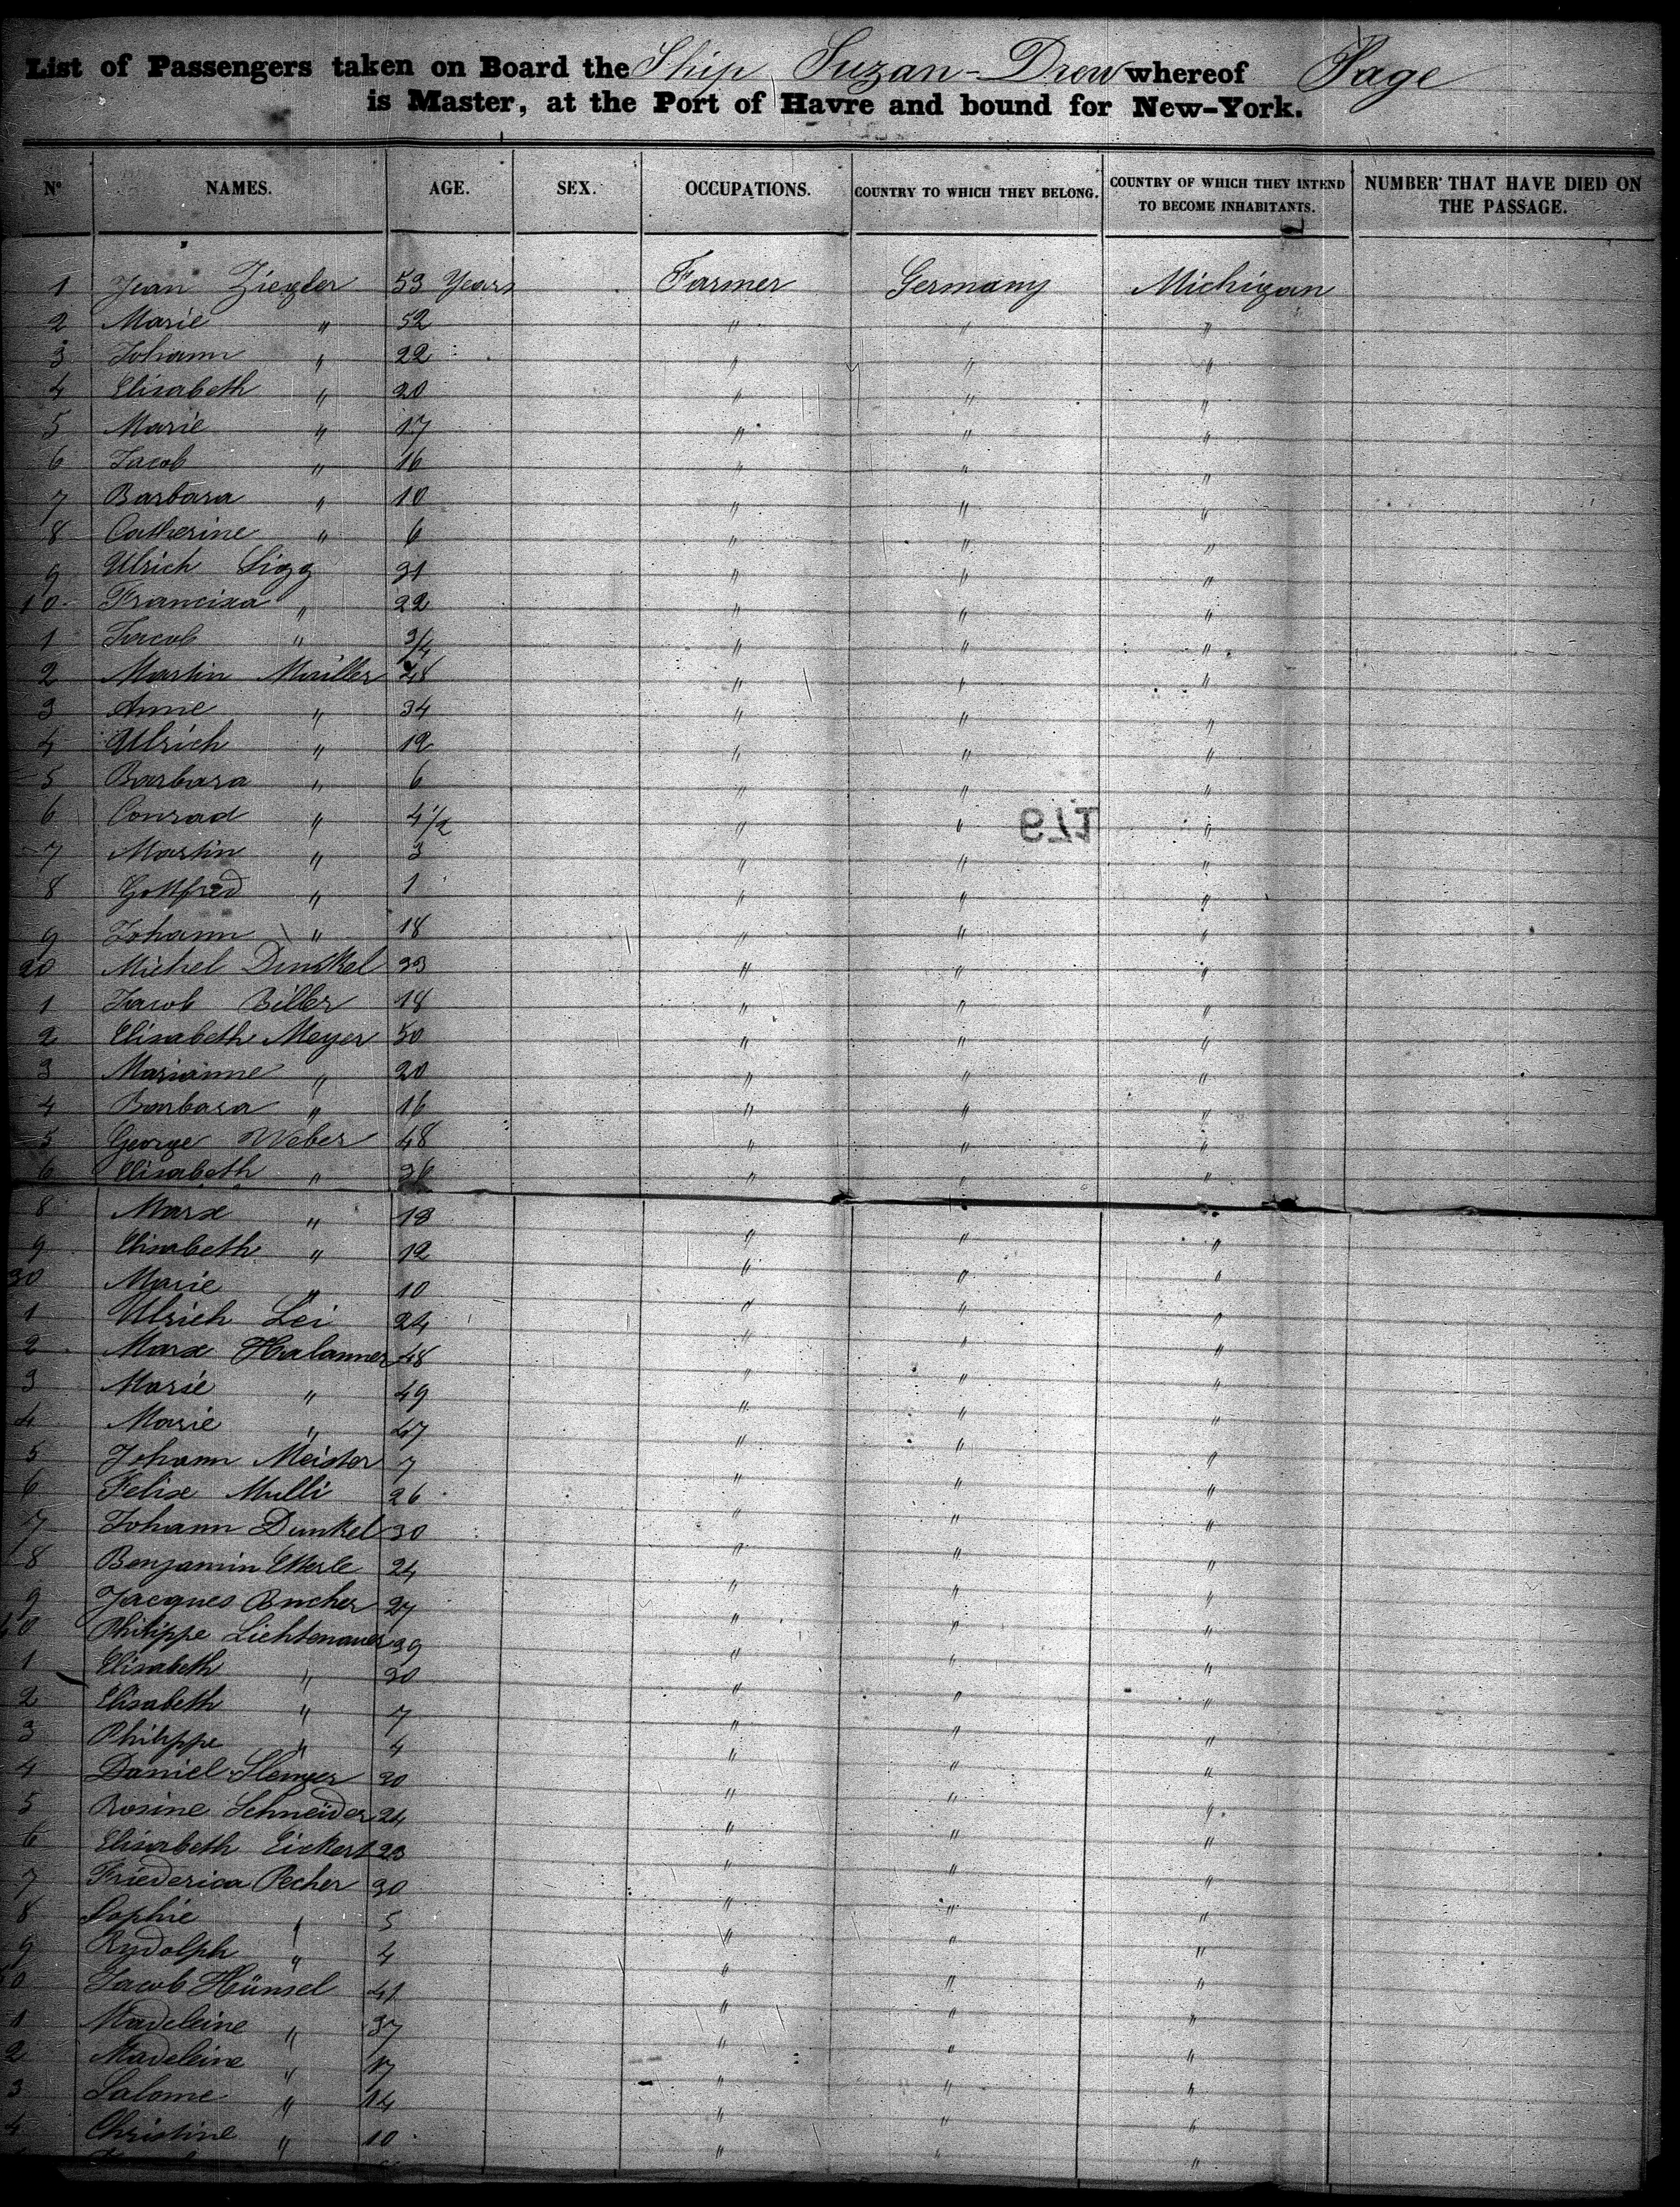 List of Passengers taken on Board the Ship Suzan-Drew whereof Page
is Master, at the Port of Havre and bound for New-York.
N° NAMES. AGE. SEX. OCCUPATIONS. COUNTRY TO WHICH THEY BELONG. COUNTRY OF WHICH THEY INTEND TO BECOME INHABITANTS. NUMBER THAT HAVE DIED ON THE PASSAGE.
1 Jean Ziegler 53 Years Farmer Germany Michigan
2 Marie " 52 " " "
3 Johann " 22 " " "
4 Elisabeth " 20 " " "
5 Marie " 17 " " "
6 Jacob " 16 " " "
7 Barbara " 10 " " "
8 Catherine " 6 " " "
9 Ulrich Sigg 31 " " "
10 Francisca " 22 " " "
1 Jacob " 3/4 " " "
2 Martin Müller 48 " " "
3 Anne " 34 " " "
4 Ulrich " 12 " " "
5 Barbara " 6 " " "
6 Conrad " 4 1/2 " " "
179
7 Martin " 3 " " "
8 Gottfried " 1 " " "
9 Johann " 18 " " "
20 Michel Dunkel 33 " " "
1 Jacob Biller 18 " " "
2 Elisabeth Meyer 50 " " "
3 Marianne " 20 " " "
4 Barbara " 16 " " "
5 George Weber 48 " " "
6 Elisabeth " 36 " " "
8 Marx " 13 " " "
9 Elisabeth " 12 " " "
30 Marie " 10 " " "
1 Ulrich Lei 24 " " "
2 Marx 48 " " "
3 Marie " 49 " " "
4 Marie " 47 " " "
5 Johann Meister 7 " " "
6 Felix Mulli 26 " " "
7 Johann Dunkel 30 " " "
8 Benjamin 24 " " "
9 Jacques Bucher 27 " " "
40 Philippe Lichtenauer 39 " " "
1 Elisabeth " 30 " " "
2 Elisabeth " 7 " " "
3 Philippe " 4 " " "
4 Daniel 20 " " "
5 Rosine Schneider 24 " " "
6 Elisabeth Eickert 23 " " "
7 Friederica Pecher 30 " " "
8 Sophie " 5 " " "
9 Rudolph " 4 " " "
50 Jacob Hünsel 41 " " "
1 Madeleine " 37 " " "
2 Madeleine " 17 " " "
3 Salome " 14 " " "
4 Christine " 10 " " "